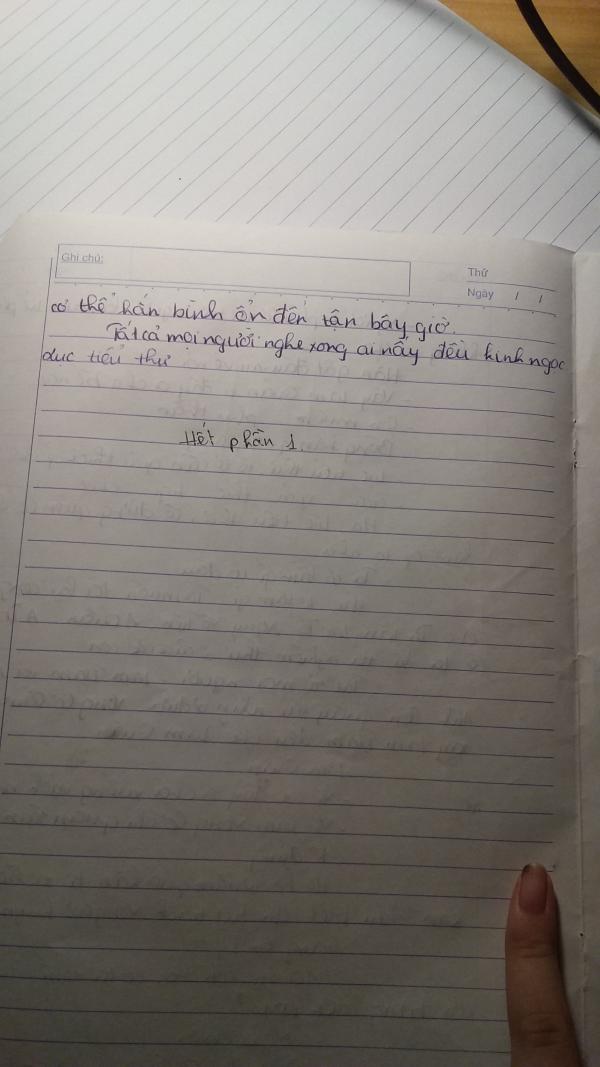 Ghi chú:
Thứ
Ngày / /
có thể hắn bình ổn đến tận bây giờ.
Tất cả mọi người nghe xong ai nấy đều kinh ngạc
dục tiểu thư
Hết phần 1.